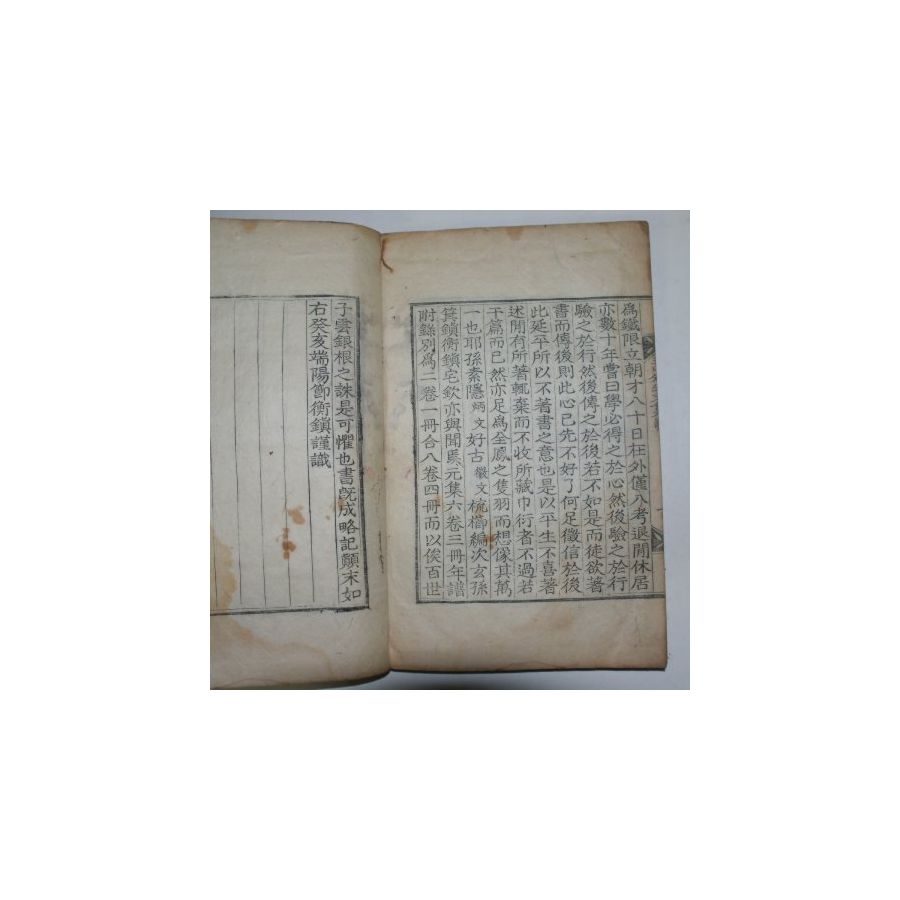 爲鐵限立朝才八十日在外僅八考退閒休居
亦數十年嘗曰學必得之於心然後驗之於行
驗之於行然後傳之於後若不如是而徒欲著
書而傳後則此心已先不好了何足徵信於後
此延平所以不著書之意也是以平生不喜著
述間有所著輒棄而不收所藏巾衍者不過若
干篇而已然亦足爲全鳳之隻羽而想像其萬
一也耶孫素隱炳文好古徽文梳櫛編次玄孫
箕鎭衡鎭宅欽亦與聞焉元集六卷三冊年譜
附錄別爲二卷一冊合八卷四冊而以俟百世
子雲銀根之誅是可懼也書旣成略記顚末如
右癸亥端陽節衡鎭謹識